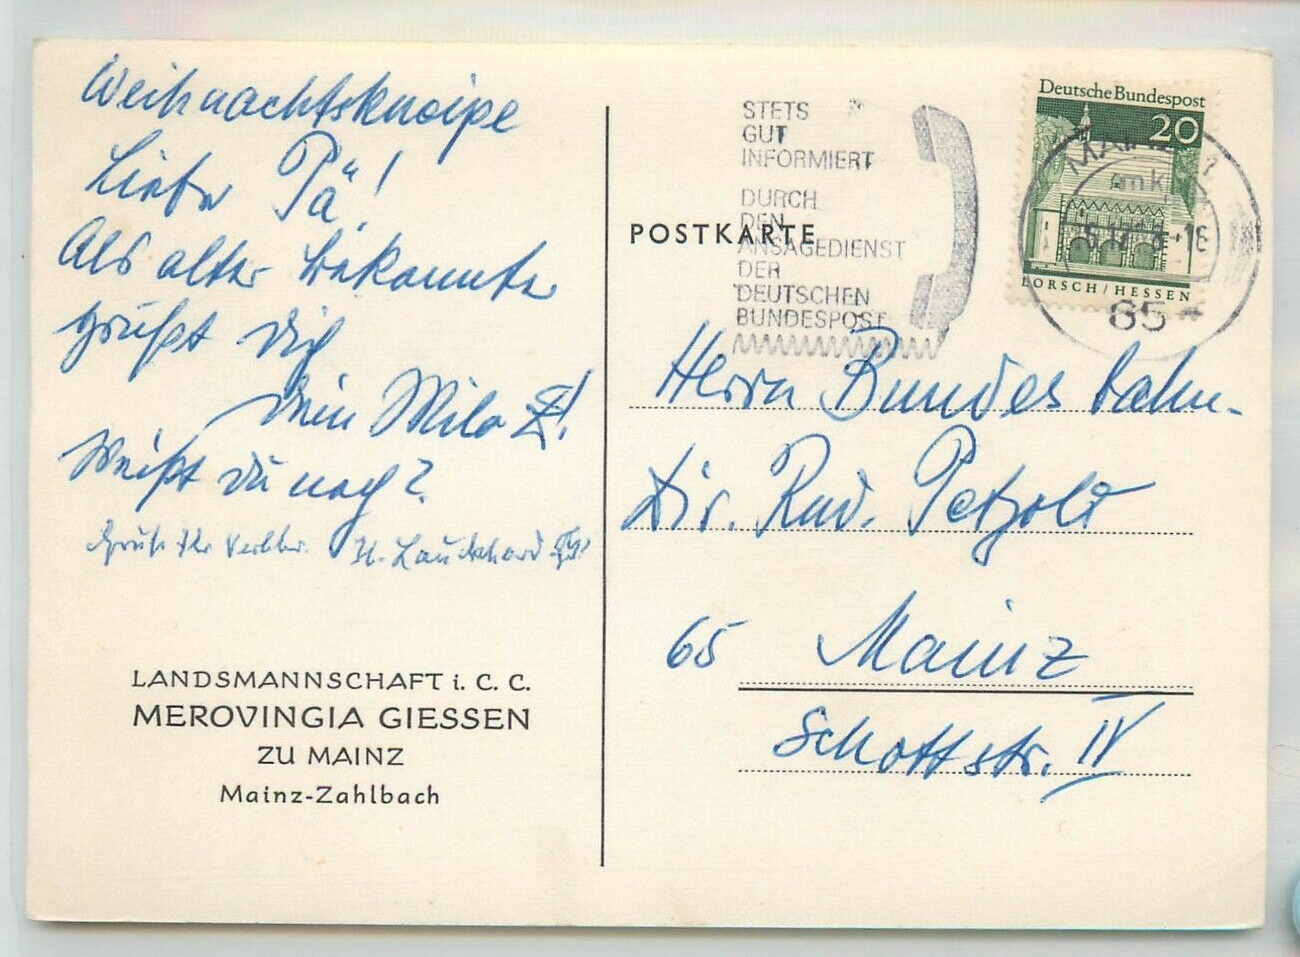 Weihnachtskneipe
Lieber Pä!
Als alter Bekannter
grüßt Dich
Dein Milo Z!
Weißt Du noch?
Gruß Ihr H. Lauckhard
LANDSMANNSCHAFT i. C. C.
MEROVINGIA GIESSEN
ZU MAINZ
Mainz-Zahlbach
STETS
GUT
INFORMIERT
DURCH
DEN
ANSAGEDIENST
DER
DEUTSCHEN
BUNDESPOST
POSTKARTE
Deutsche Bundespost
20
LORSCH/HESSEN
MAINZ
mk
65
Herrn Bundesbahn-
Dir. Rud. Petzold
65 Mainz
Schottstr. IV